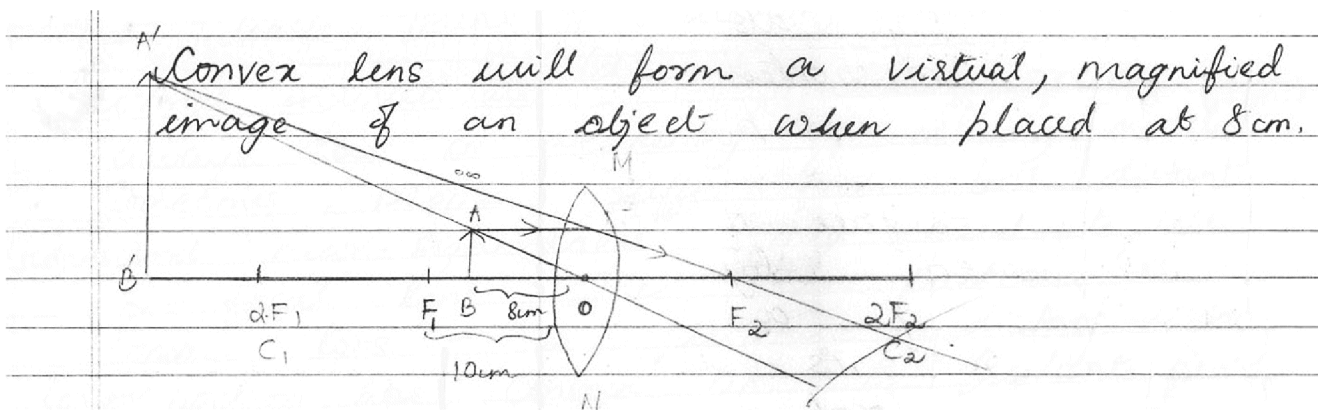 A'
Convex lens will form a virtual, magnified
image of an object when placed at 8cm.
M
A
B'
2F₁
F₁
B
8cm
O
F₂
2F₂
C₁
10cm
C₂
N